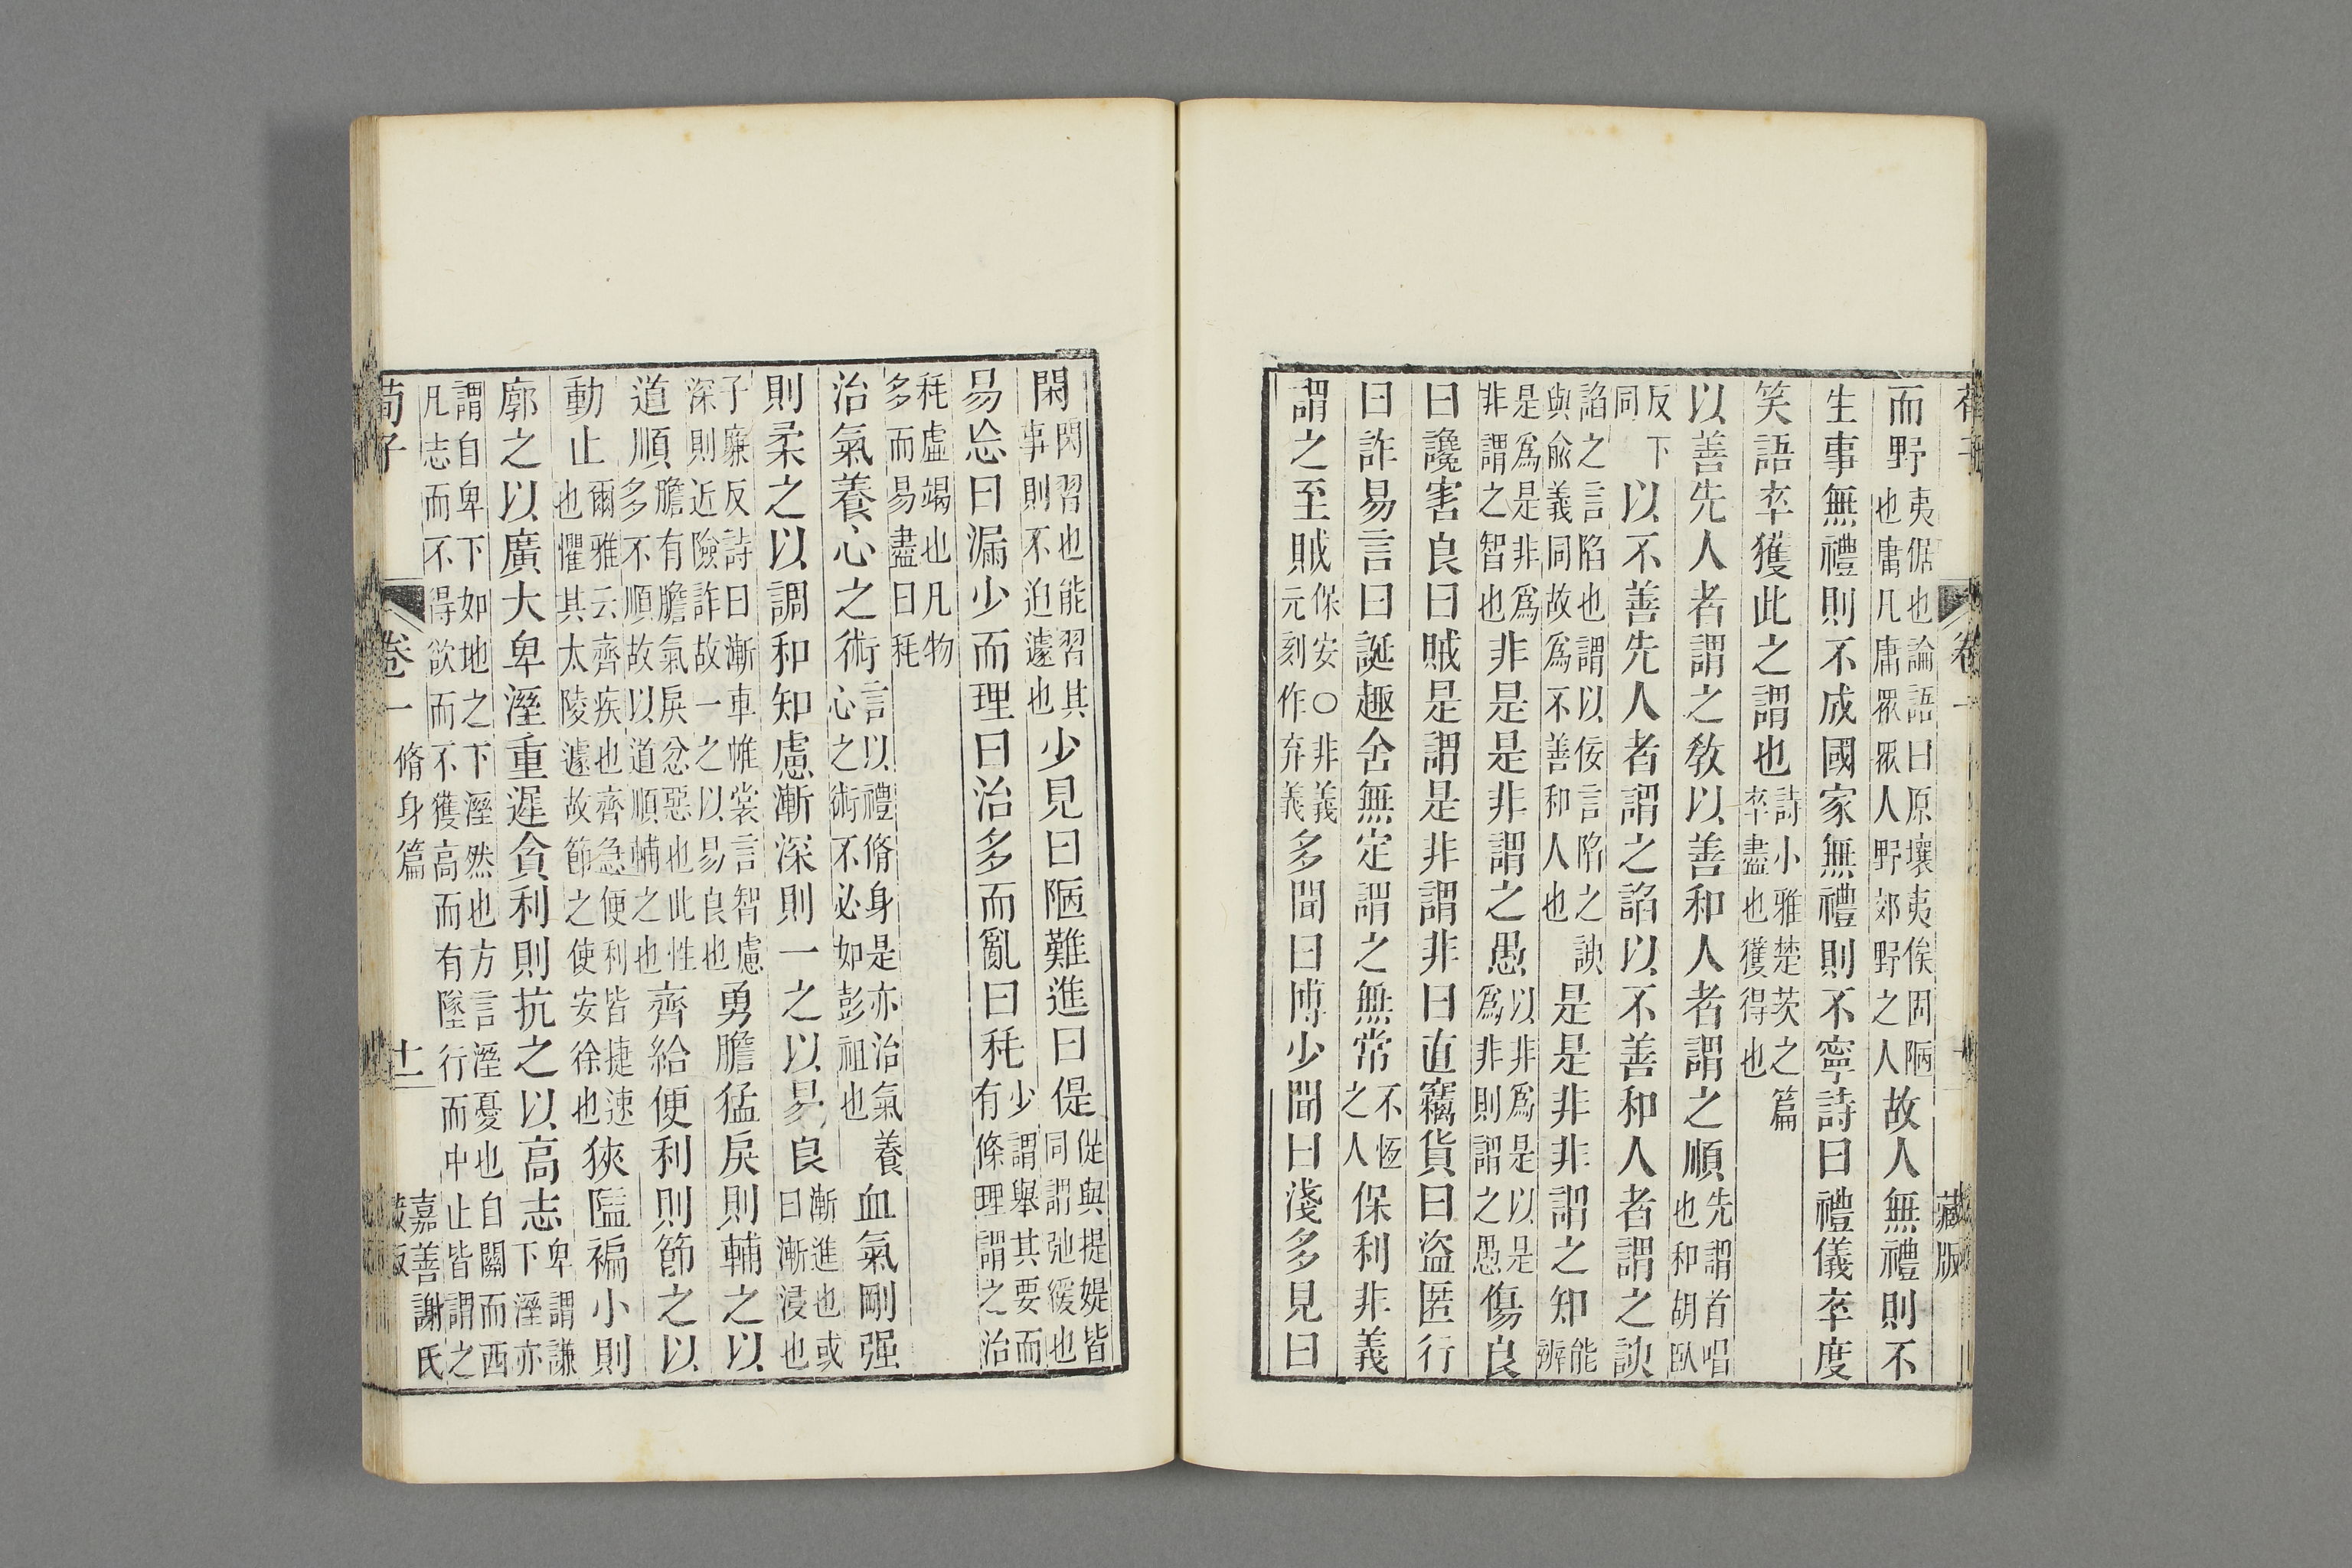 荀子 卷一 藏版
而野夷倨也論語曰原壤夷俟固陋也庸凡庸眾眾人野郊野之人故人無禮則不
生事無禮則不成國家無禮則不寧詩曰禮儀卒度
笑語卒獲此之謂也詩小雅楚茨之篇卒盡也獲得也
以善先人者謂之敎以善和人者謂之順先謂首唱也和胡臥
反下同以不善先人者謂之諂以不善和人者謂之諛
諂之言陷也謂以佞言陷之諛與俞義同故爲不善和人也是是非非謂之知能辨
是爲是非爲非謂之智也非是是非謂之愚以非爲是以是爲非則謂之愚傷良
曰讒害良曰賊是謂是非謂非曰直竊貨曰盜匿行
曰詐易言曰誕趣舍無定謂之無常不恆之人保利非義
謂之至賊保安○非義元刻作弃義多聞曰博少聞曰淺多見曰
閑閑習也能習其事則不迫遽也少見曰陋難進曰偍偍與提媞皆同謂弛緩也
易忘曰漏少而理曰治多而亂曰秏少謂舉其要而有條理謂之治
秏虛竭也凡物多而易盡曰秏
治氣養心之術言以禮脩身是亦治氣養心之術不必如彭祖也血氣剛强
則柔之以調和知慮漸深則一之以易良漸進也或曰漸浸也
子廉反詩曰漸車帷裳言智慮深則近險詐故一之以易良也勇膽猛戾則輔之以
道順膽有膽氣戾忿惡也此性多不順故以道順輔之也齊給便利則節之以
動止爾雅云齊疾也齊急便利皆捷速也懼其太陵遽故節之使安徐也狹隘褊小則
廓之以廣大卑溼重遲貪利則抗之以高志卑謂謙下溼亦
謂自卑下如地之下溼然也方言溼憂也自關而西凡志而不得欲而不獲高而有墜行而中止皆謂之
荀子 卷一 脩身篇 十一 嘉善謝氏藏版